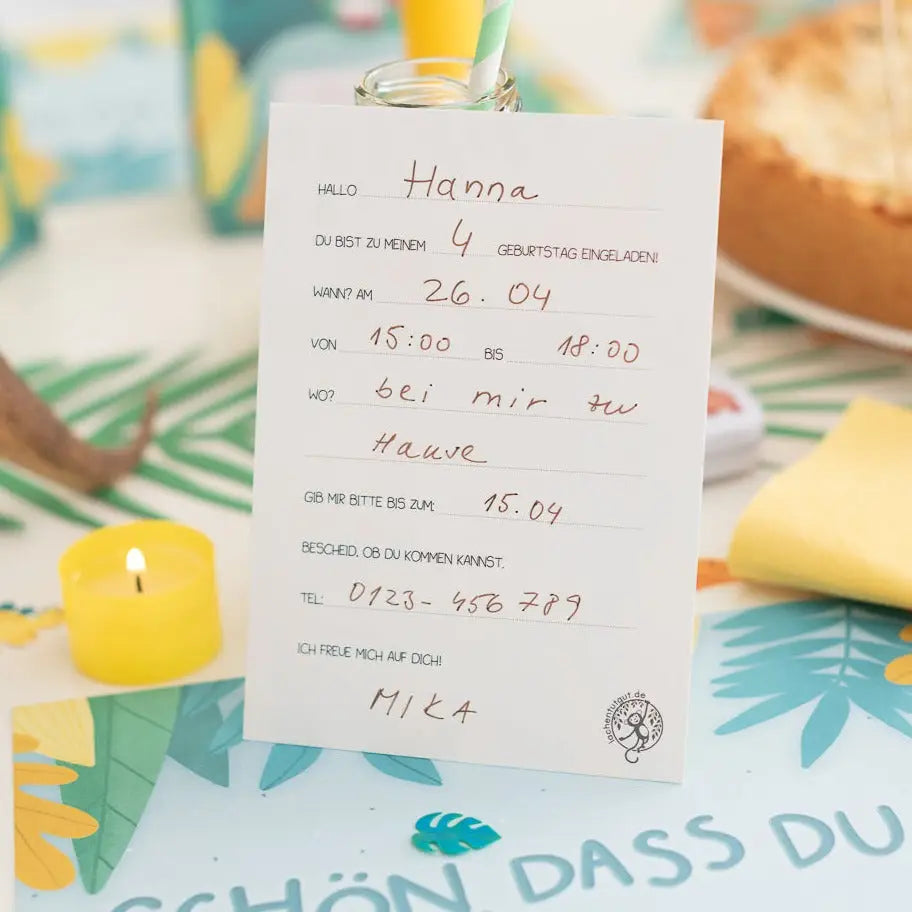 HALLO Hanna
DU BIST ZU MEINEM 4 GEBURTSTAG EINGELADEN!
WANN? AM 26. 04
VON 15:00 BIS 18:00
WO? bei mir zu
Hause
GIB MIR BITTE BIS ZUM: 15.04
BESCHEID, OB DU KOMMEN KANNST.
TEL: 0123-456 789
ICH FREUE MICH AUF DICH!
MIKA
lachentutgut.de
SCHÖN, DASS DU